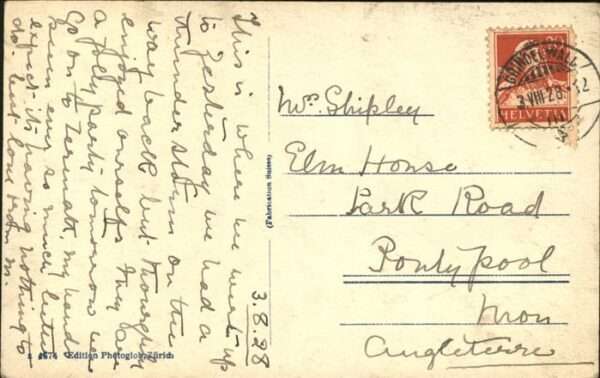 3.8.28
This is where we went up
to yesterday we had a
thunder storm on the
way back but thoroughly
enjoyed ourselves they are
a jolly party tomorrow we
go on to Zermatt. my hand
been ever so much better
expect its having nothing to
do. best love from M.
(Fabrication Suisse)
Mrs. Shipley
Elm House
Park Road
Pontypool
Mon
Angleterre
GRINDELWALD
3.VIII.28.
HELVETIA
Edition Photoglob Zürich